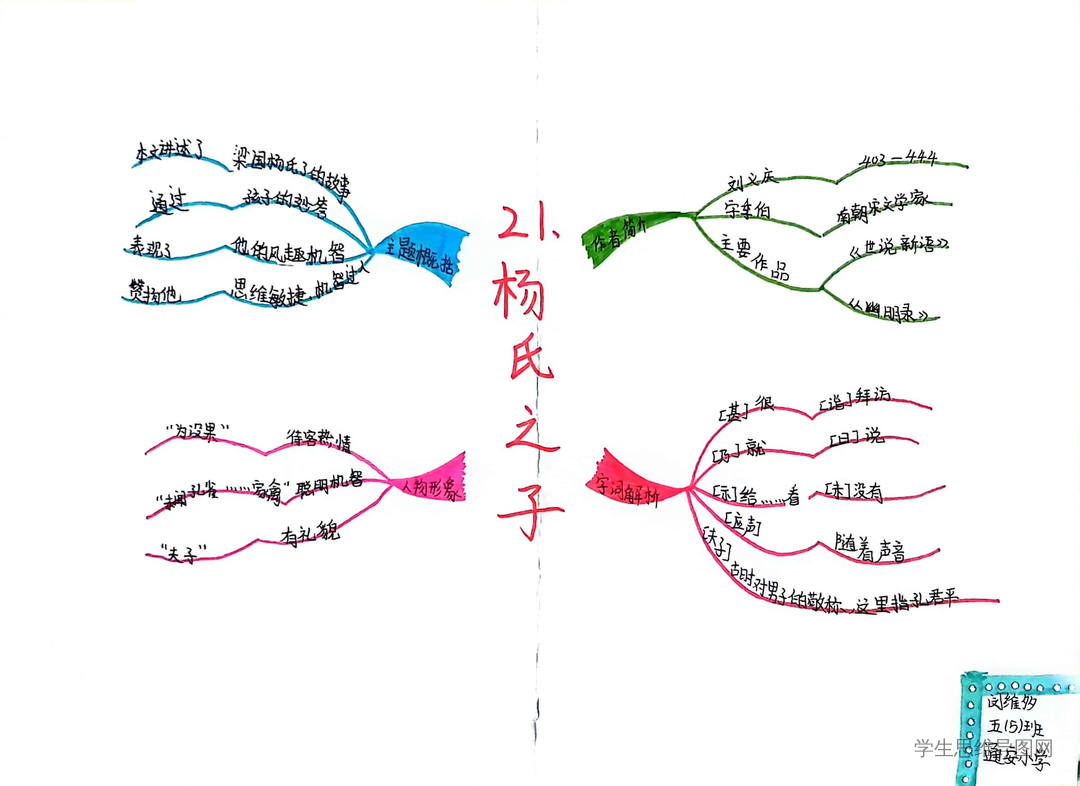 21、杨氏之子
作者简介
刘义庆
403—444
字季伯
南朝宋文学家
主要作品
《世说新语》
《幽明录》
字词解析
[甚]很
[诣]拜访
[乃]就
[曰]说
[示]给……看
[未]没有
[应声]
随着声音
[夫子]
古时对男子的敬称、这里指孔君平
人物形象
待客热情
“为设果”
聪明机智
“未闻孔雀……家禽”
有礼貌
“夫子”
主题概括
本文讲述了
梁国杨氏子的故事
通过
孩子的妙答
表现了
他的风趣机智
赞扬他
思维敏捷、机智过人
闵维多
五(5)班
通安小学
学生思维导图网